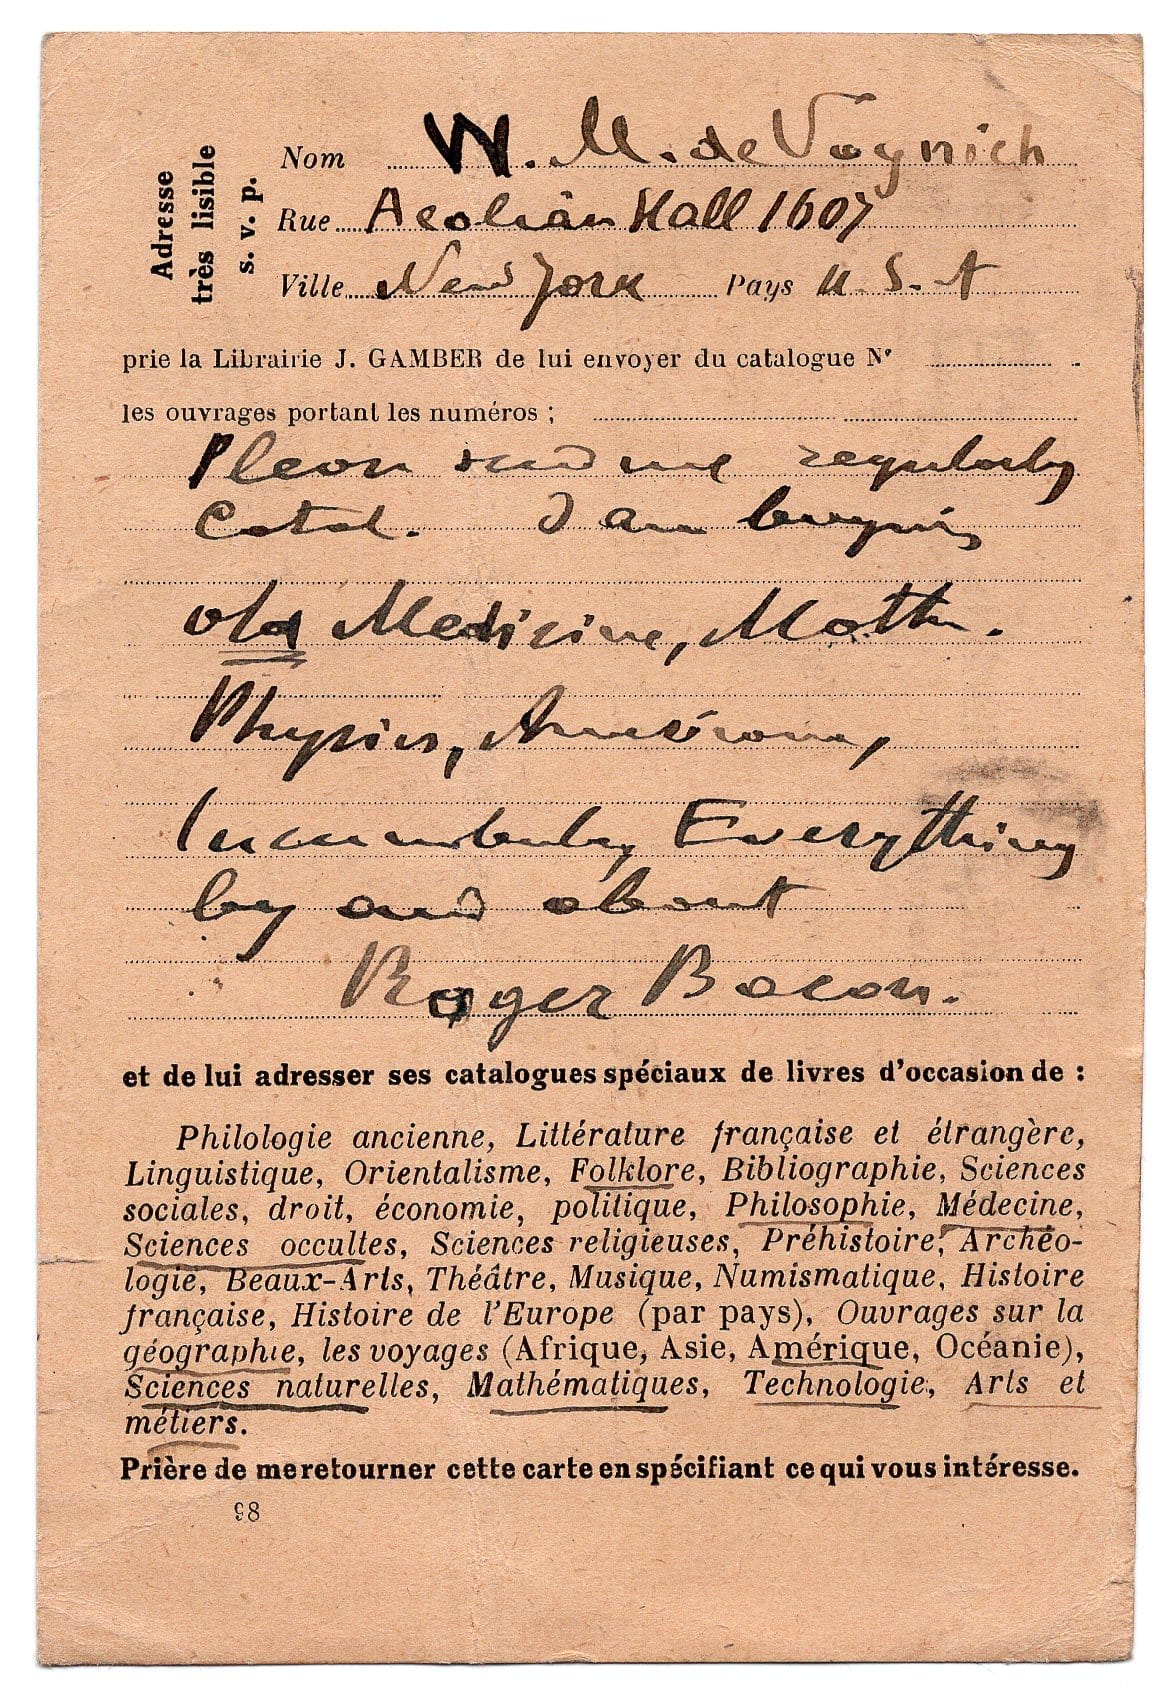 Adresse
très lisible
s. v. p.
Nom W. M. de Voynich
Rue Aeolian Hall 1607
Ville New York Pays U. S. A
prie la Librairie J. GAMBER de lui envoyer du catalogue Nº
les ouvrages portant les numéros ;
Please send me regularly
Catal. I am buying
old Medicine, Math.
Physics, Americana,
Incunabula, Everything
by and about
Roger Bacon.
et de lui adresser ses catalogues spéciaux de livres d'occasion de :
Philologie ancienne, Littérature française et étrangère,
Linguistique, Orientalisme, Folklore, Bibliographie, Sciences
sociales, droit, économie, politique, Philosophie, Médecine,
Sciences occultes, Sciences religieuses, Préhistoire, Archéo-
logie, Beaux-Arts, Théâtre, Musique, Numismatique, Histoire
française, Histoire de l'Europe (par pays), Ouvrages sur la
géographie, les voyages (Afrique, Asie, Amérique, Océanie),
Sciences naturelles, Mathématiques, Technologie, Arts et
métiers.
Prière de me retourner cette carte en spécifiant ce qui vous intéresse.
98